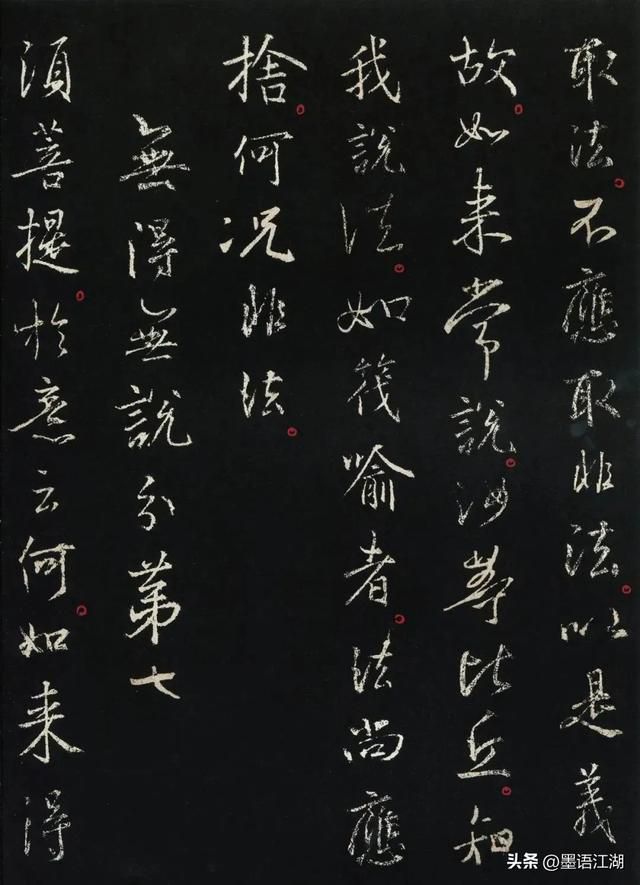 取法不應取非法以是義
故如来常說汝等比丘知
我說法如筏喻者法尚應
捨何况非法
無得無說分第七
須菩提於意云何如来得
头条 @墨语江湖